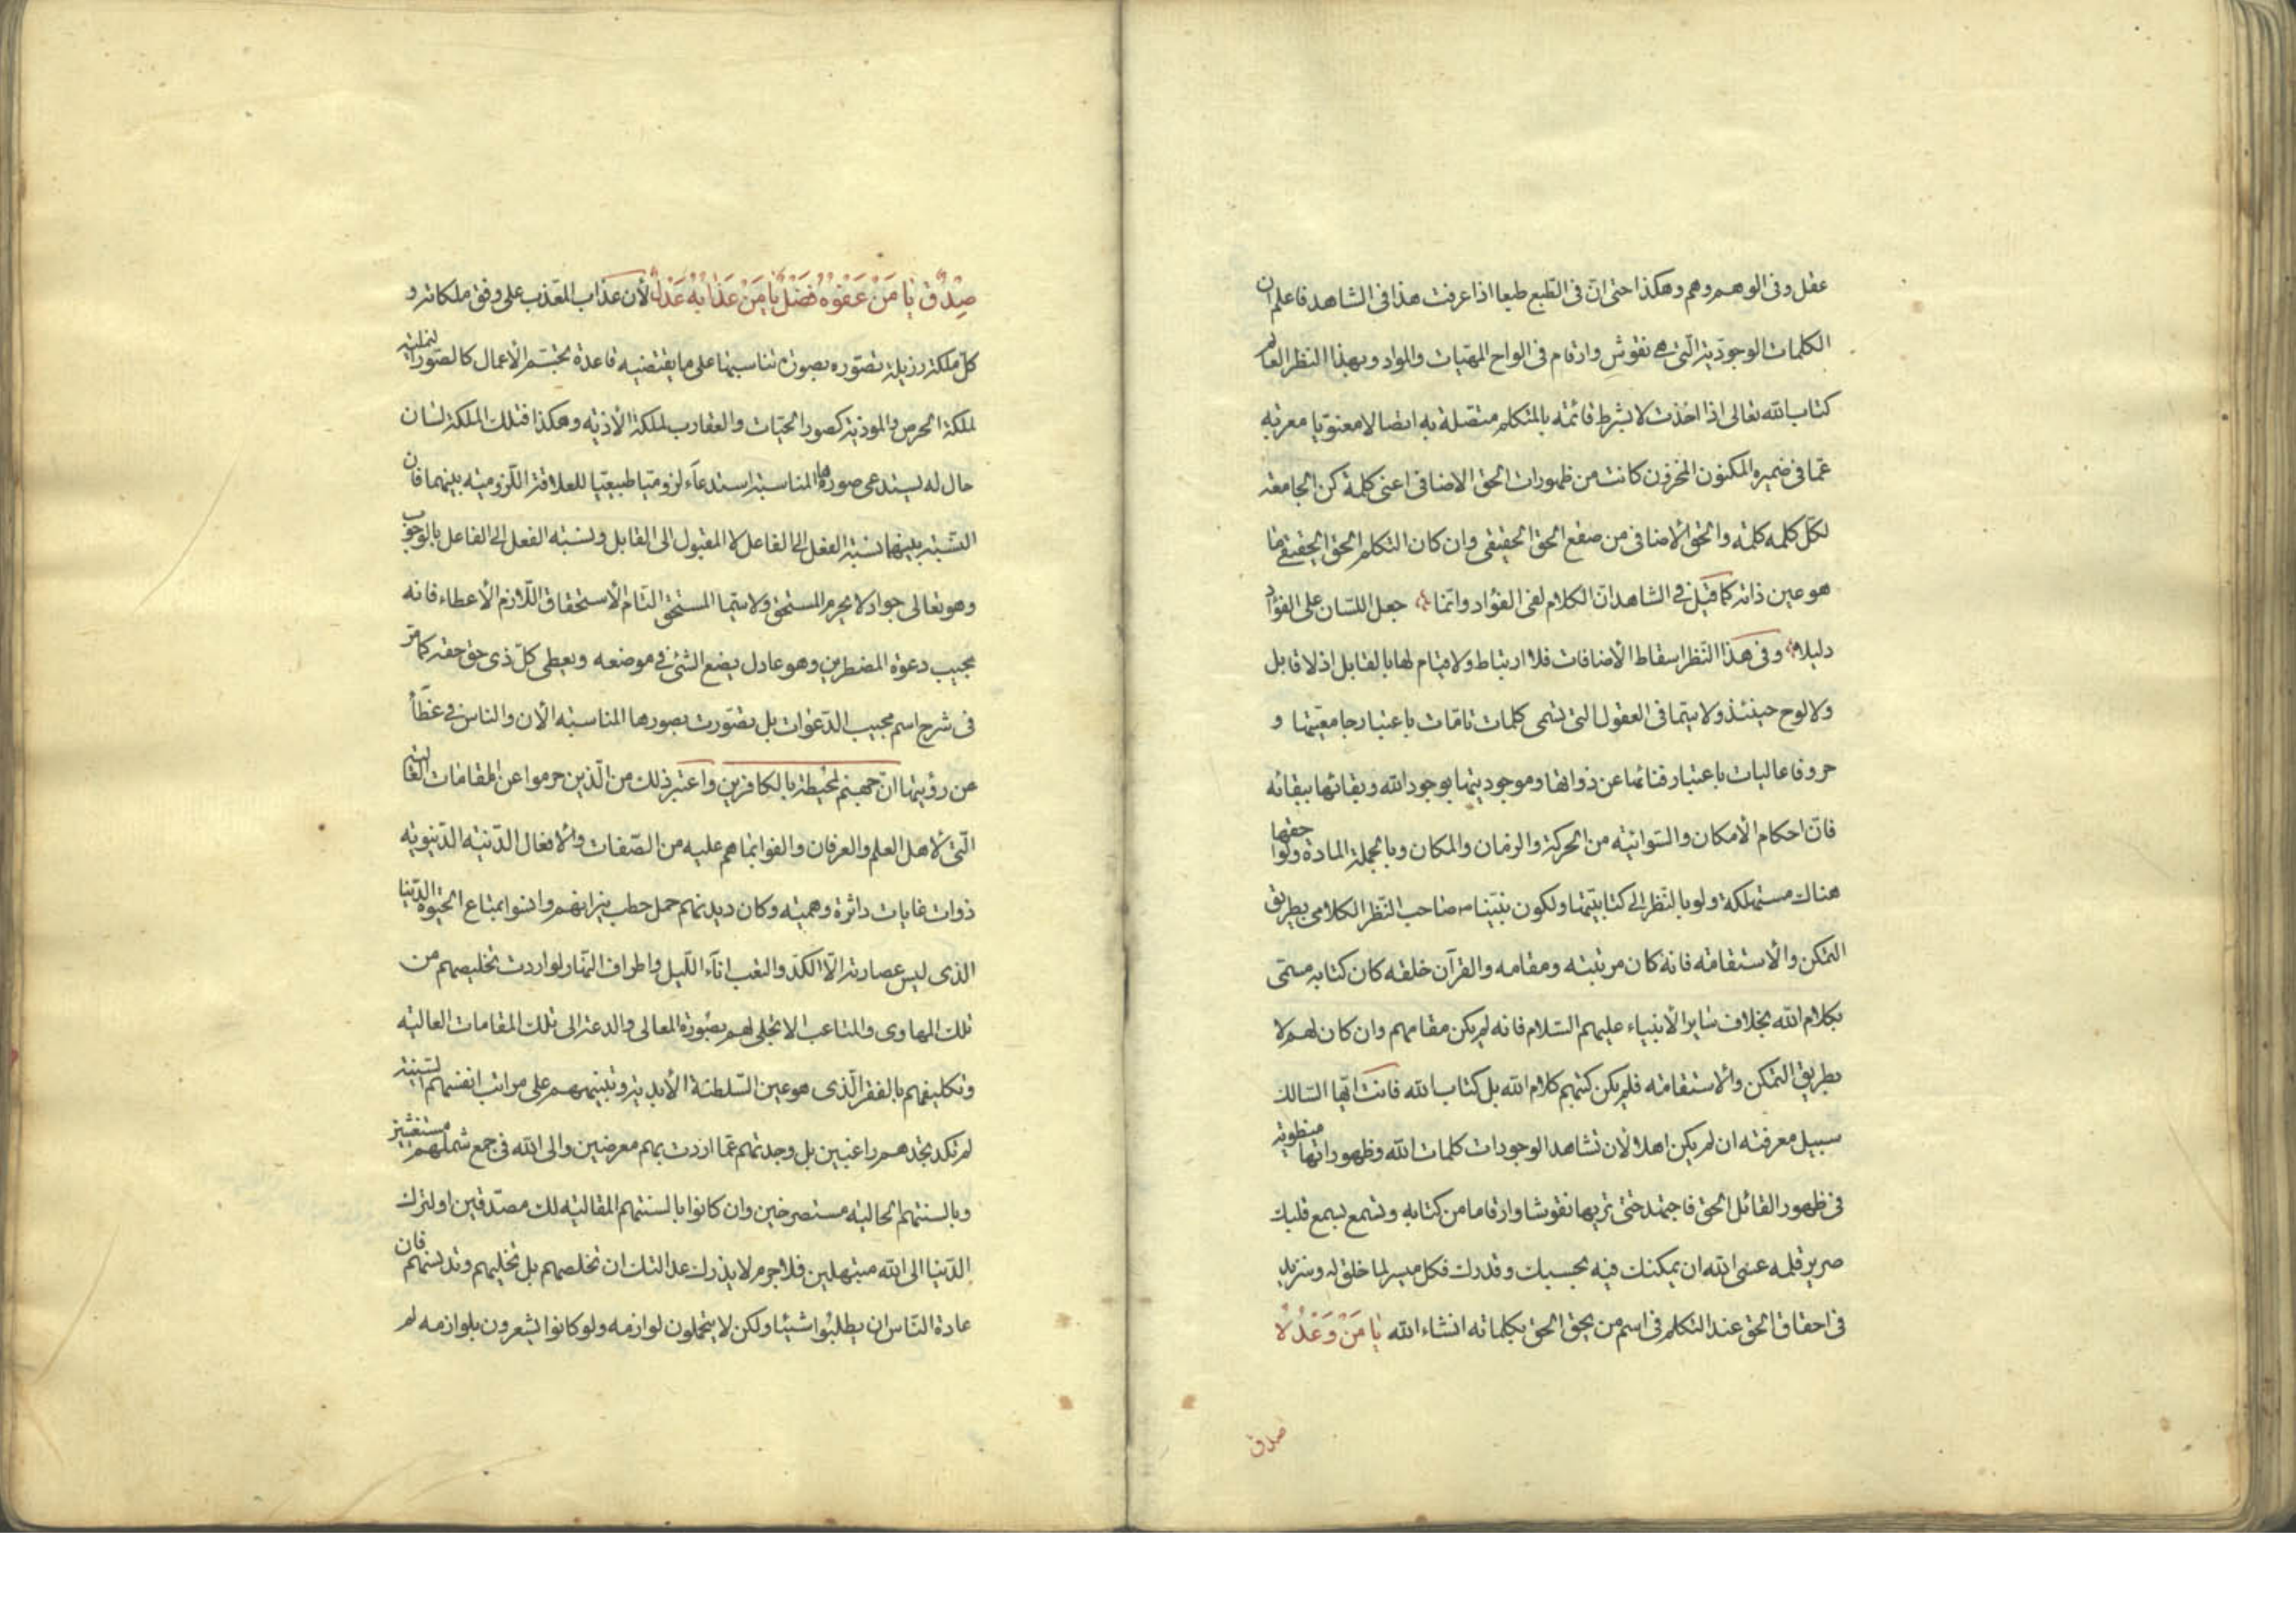 عقل وفى الوهم وهم وهكذا حتى ان فى الطبع طبعا اذا عرفت هذا فى الشاهد فاعلم ان
الكلمات الوجوديّة الّتى هى نقوش وارقام فى الواح المهيّات والمواد وبهذا النظر العالم
كتاب الله تعالى اذا اخذت لا بشرط قائمة بالمتكلم متصلة به اتصالا معنويّا معربة
عمّا فى ضميره المكنون المخزون كانت من ظهورات الحق الاضافى اعنى كلمة كن الجامعة
لكلّ كلمه كلمة والحق الاضافى من صقع الحق الحقيقى وان كان التكلم الحق الحقيقى بما
هو عين ذاته كما قيل فى الشاهد انّ الكلام لفى الفؤاد وانّما جعل اللسان على الفؤاد
دليلا وفى هذا النّظر اسقاط الأضافات فلا ارتباط ولا قيام لها بالقابل اذ لا قابل
ولا لوح حينئذ ولا سيّما فى العقول التى تسمى كلمات تامّات باعتبار جامعيّتها و
حروفا عاليات باعتبار فنائها عن ذواتها وموجوديتها بوجود الله وبقائها ببقائه
فانّ احكام الأمكان والسّوائيّه من الحركة والزمان والمكان وبالجملة المادة ولواحقها
هناك مستهلكة ولو بالنّظر الى كتابيّتها ولكون نبيّنا ص صاحب النّظر الكلامى بطريق
التمكن والأستقامة فانه كان مرتبته ومقامه والقرآن خلقه كان كتابه مسمّى
بكلام الله بخلاف سائر الأنبياء عليهم السّلام فانه لم يكن مقامهم وان كان لهم لا
بطريق التمكن والاستقامه فلم يكن كتبهم كلام الله بل كتاب الله فانت ايّها السّالك
سبيل معرفته ان لم يكن اهلا لأن تشاهد الوجودات كلمات الله وظهوراتها منطوية
فى ظهور القائل الحق فاجتهد حتى تريها نقوشا وارقاما من كتابه وتسمع بسمع قلبك
صرير قلمه عسى الله ان يمكنك فيه بحسبك وقدرك فكل ميسر لما خلق له وسنزيد
فى احقاق الحق عند التكلم فى اسم من يحق الحق بكلماته انشاء الله يَا مَنْ وَعْدُهُ
صدق
صِدْقٌ يَا مَنْ عَفْوُهُ فَضْلٌ يَا مَنْ عَذَابُهُ عَدْلٌ لأن عذاب المعّذب على وفق ملكاته و
كلّ ملكة رذيلة تصّوره بصورة تناسبها على ما يقتضيه قاعدة تجسّم الأعمال كالصّور النملية
لملكة الحرص والموذية كصور الحيّات والعقارب لملكة الأذيّه وهكذا فتلك الملكة لسان
حال له يستدعى صورها المناسبة استدعآء لزوميّا طبيعيّا للعلاقة اللّزوميّه بينهما فان
النّسبة بينهما نسبة الفعل الى الفاعل لا المقبول الى القابل ونسبه الفعل الى الفاعل بالوجوب
وهو تعالى جواد لا يحرم المستحق ولا سيّما المستحق التام الأستحقاق اللّازم الأعطاء فانه
مجيب دعوة المضطرين وهو عادل يضع الشئ فى موضعه ويعطى كلّ ذى حق حقه كما مرّ
فى شرح اسم مجيب الدّعوات بل تصّورت بصورها المناسبه الأن والناس فى غطآء
عن رؤيتها انّ جهنم لمحيطة بالكافرين واعتبر ذلك من الّذين حرموا عن المقامات العاليه
الّتى لأهل العلم والعرفان والفوا بما هم عليه من الصّفات والأفعال الدّنيّه الدّنيويّه
ذوات غايات داثرة وهميّه وكان ديدنهم حمل حطب نيرانهم وانسوا بمتاع الحيوة الدّنيا
الذى ليس عصارته الّا الكدّ والتعب انآء اللّيل واطراف النّهار لو اردت تخليصهم من
تلك المهاوى والمتاعب لا تجلى لهم بصورة المعالى والدعة الى تلك المقامات العاليه
وتكليفهم بالفقر الّذى هو عين السّلطنة الأبديّة وتنبيههم على مراتب انفسهم السّنية
لم تكد تجدهم راغبين بل وجدتهم عمّا اردت بهم معرضين والى الله فى جمع شملهم مستغيثين
وبالسنتهم الحاليّه مستصرخين وان كانوا بالسنتهم المقاليّه لك مصدّقين او لترك
الدّنيا الى الله مبتهلين فلا جرم لا يذرك عدالتك ان تخلصهم بل تخليهم وتدسّهم فان
عادة النّاس ان يطلبوا شيئا ولكن لا يتحملون لوازمه ولو كانوا يشعرون بلوازمه لم